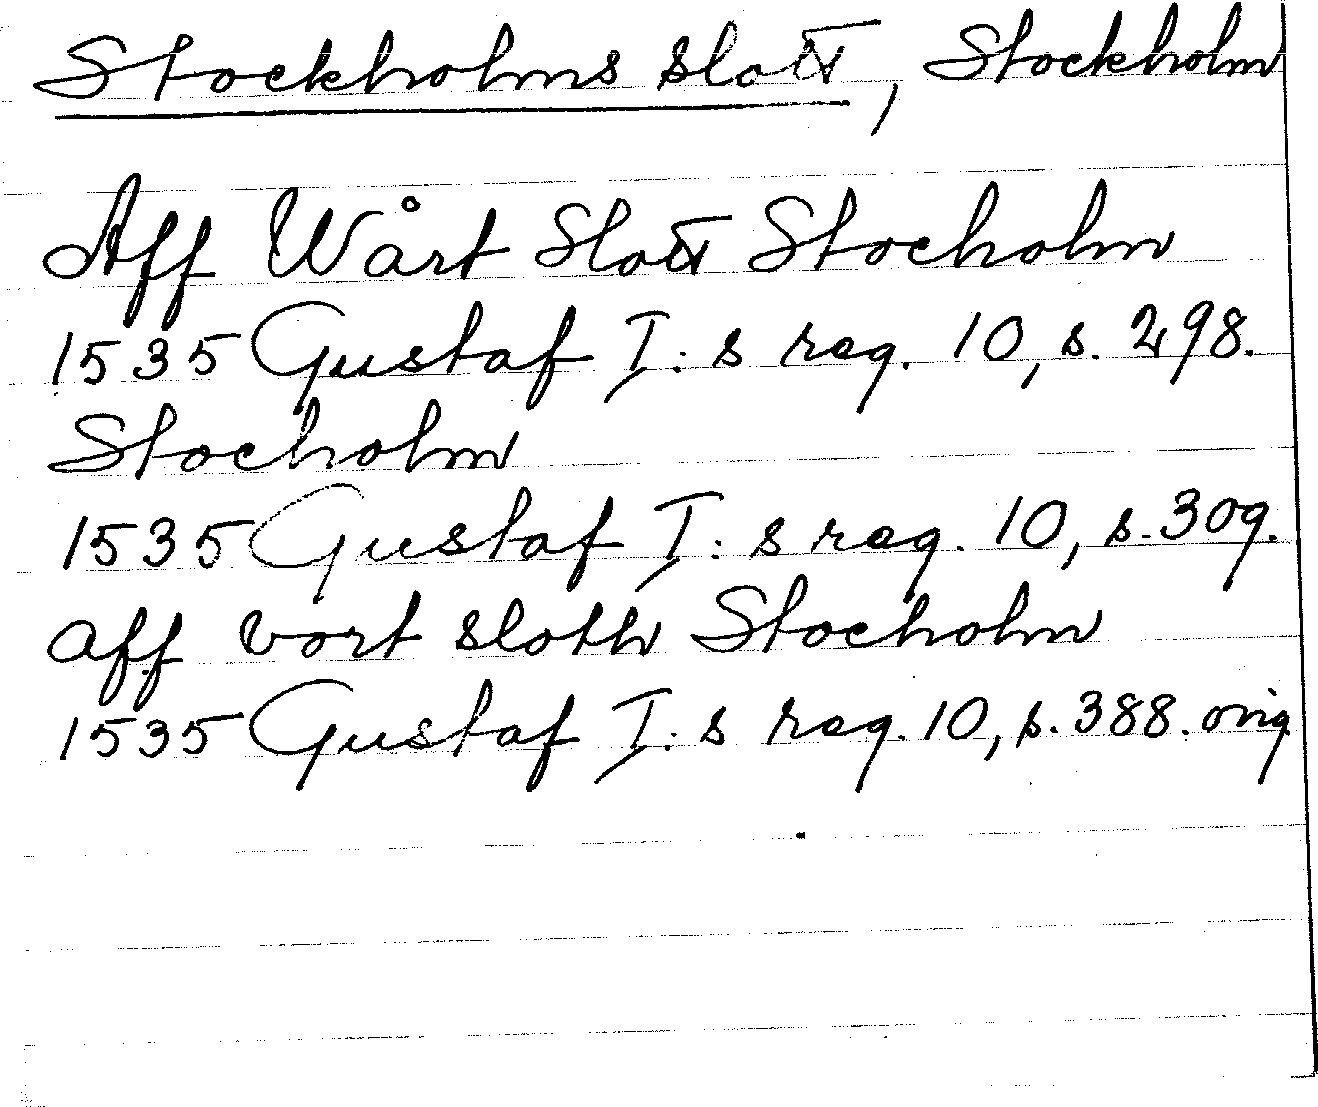 Stockholms slott, Stockholm
Aff Wårt Slott Stocholm
1535 Gustaf I:s reg. 10, s. 298.
Stocholm
1535 Gustaf I:s reg. 10, s. 309.
aff vort sloth Stocholm
1535 Gustaf I:s reg. 10, s. 388. orig